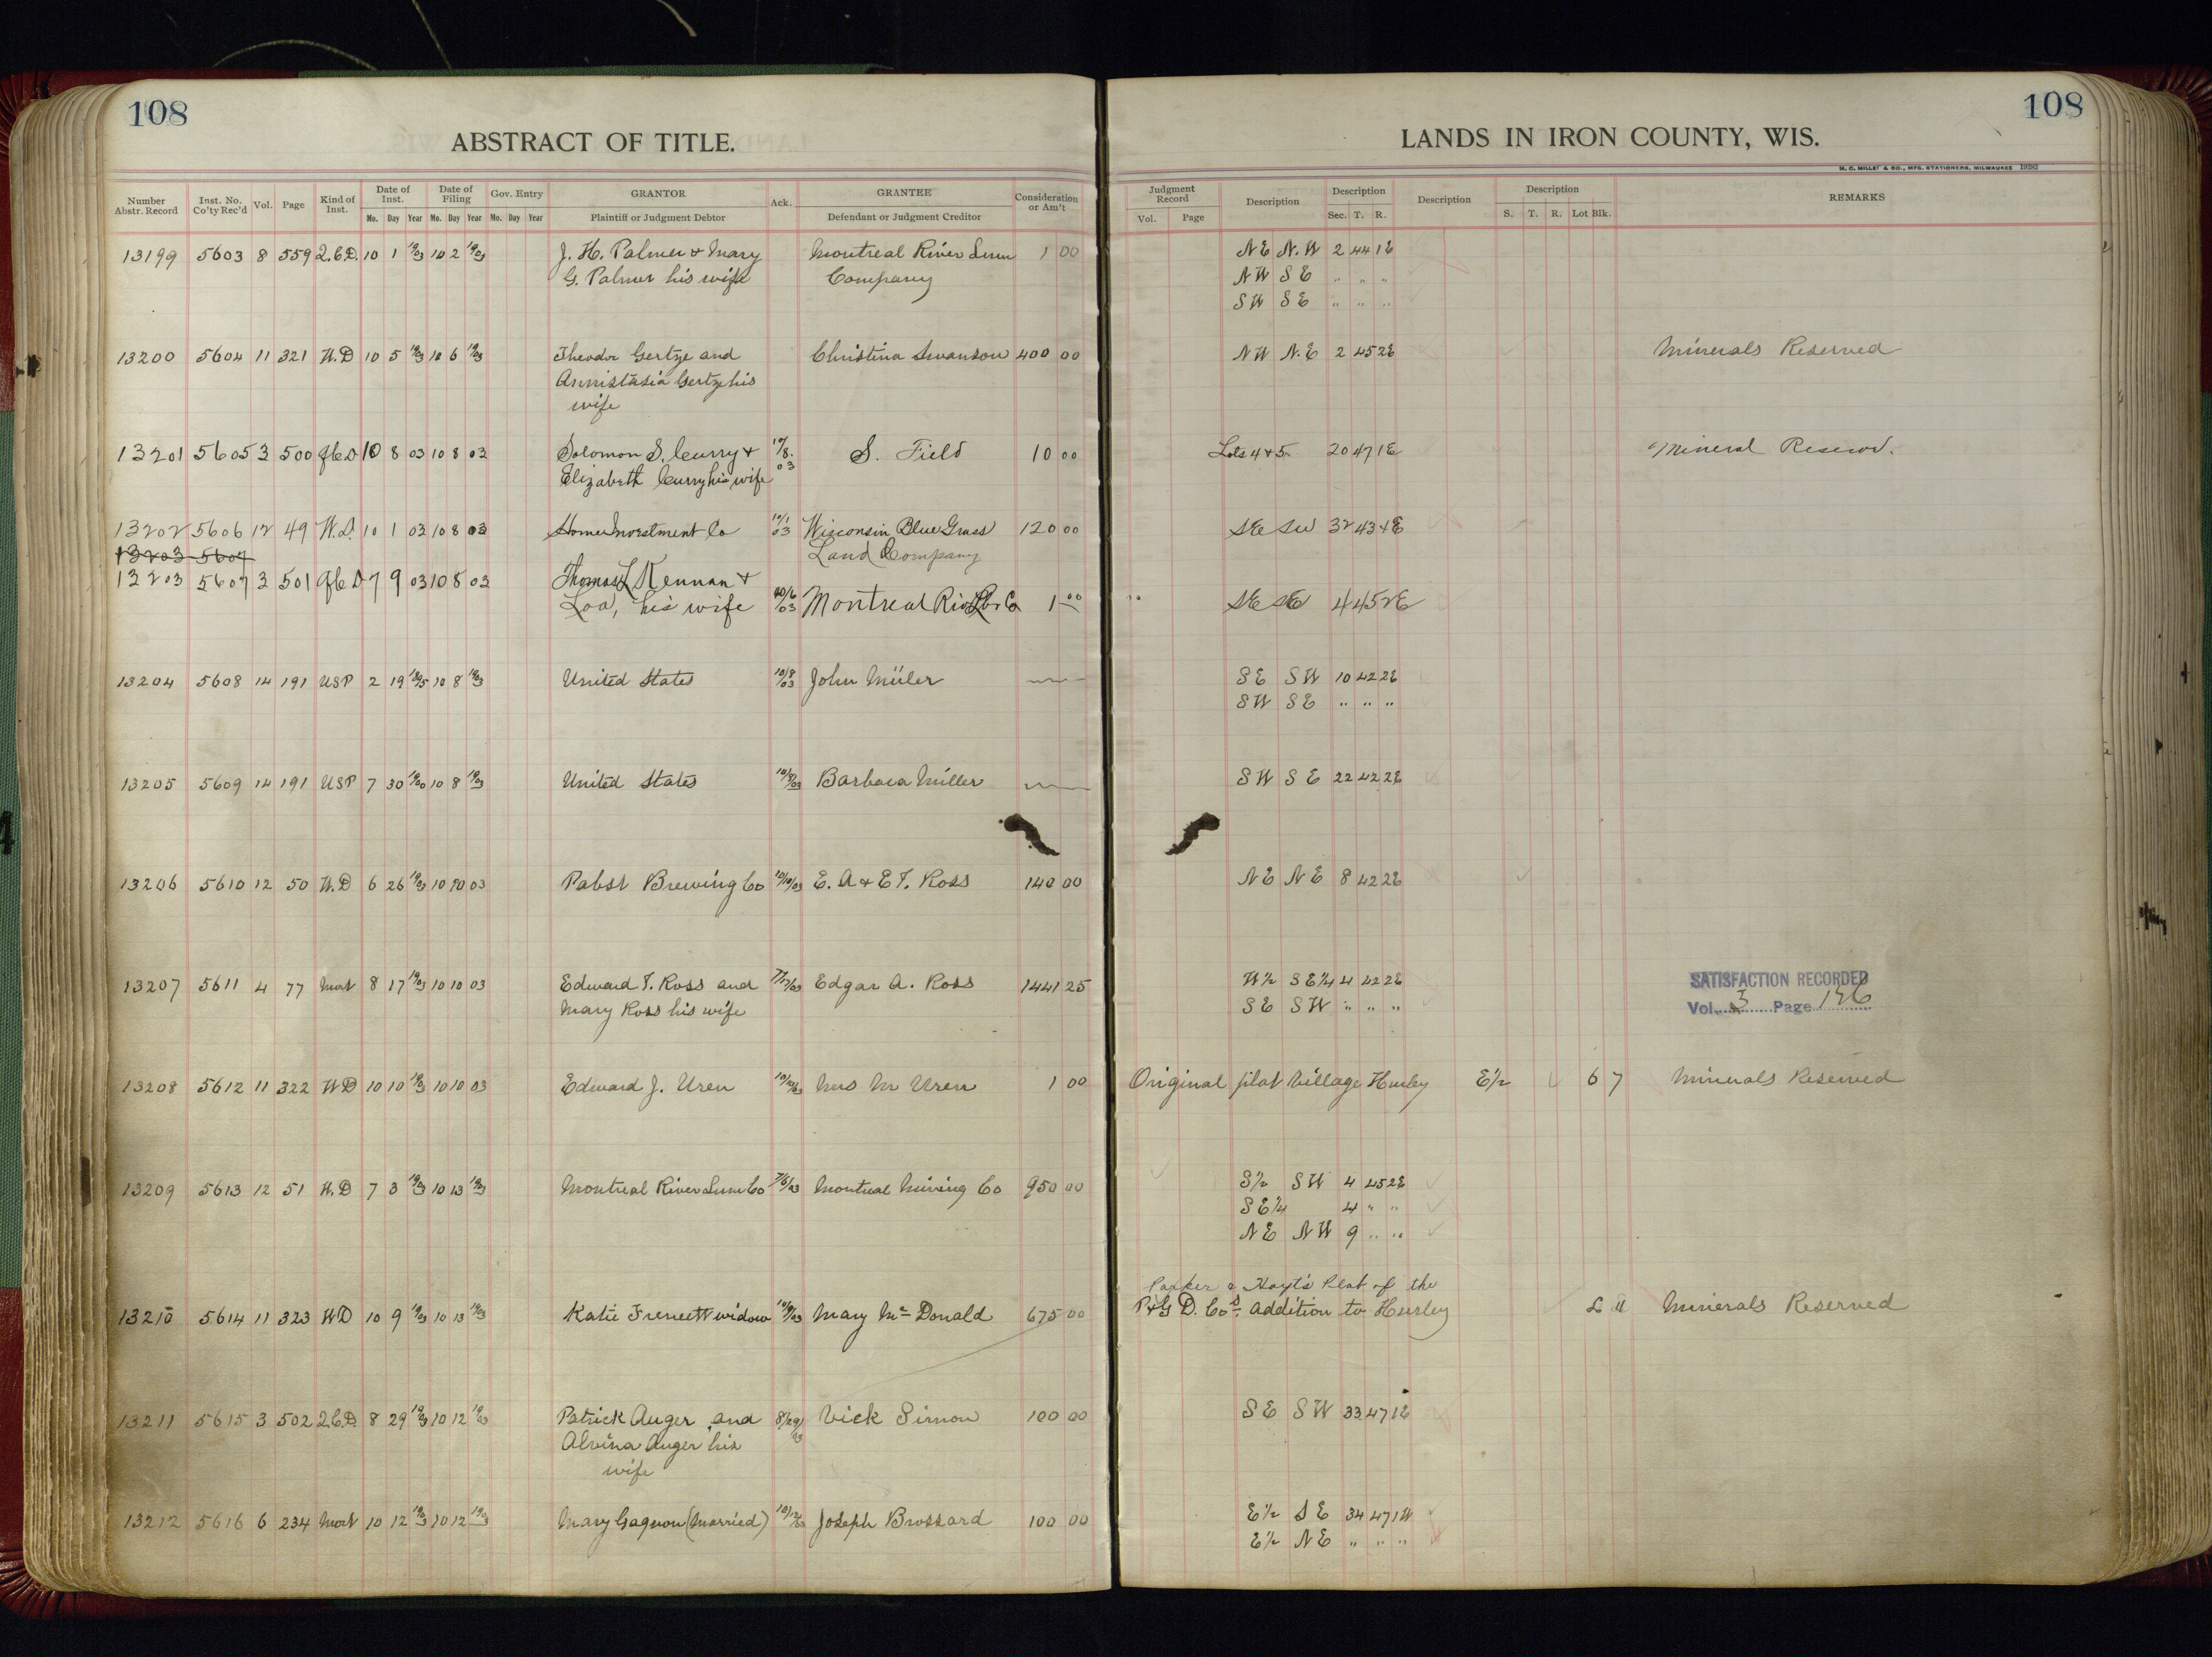 108
ABSTRACT OF TITLE.
Number Abstr. Record | Inst. No. Co'ty Rec'd | Vol. | Page | Kind of Inst. | Date of Inst. Mo. Day Year | Date of Filing Mo. Day Year | Gov. Entry Mo. Day Year | GRANTOR Plaintiff or Judgment Debtor | Ack. | GRANTEE Defendant or Judgment Creditor | Consideration or Am't
13199 5603 8 559 Q.C.D. 10 1 1903 10 2 1903 J. H. Palmer & Mary Montreal River Lum 1 00
G. Palmer his wife Company
13200 5604 11 321 W.D 10 5 1903 10 6 1903 Theodor Gertze and Christina Swanson 400 00
Annistasia Gertze his
wife
13201 5605 3 500 QCD 10 8 03 10 8 03 Solomon S. Curry & 10/8. 03 S. Field 10 00
Elizabeth Curry his wife
13202 5606 12 49 W.D. 10 1 03 10 8 03 Home Investment Co 10/1 03 Wisconsin Blue Grass 120 00
13203 5607 Land Company
13203 5607 3 501 QCD 7 9 03 10 8 03 Thomas L Kennan &
Loa, his wife 10/6/03 Montreal Riv Lbr Co 1 00
13204 5608 14 191 USP 2 19 10 8 1903 United States 10/8/03 John Müler
13205 5609 14 191 USP 7 30 1900 10 8 1903 United States 10/8/03 Barbara Miller
13206 5610 12 50 W.D 6 26 1903 10 10 03 Pabst Brewing Co 10/10/03 E. A & E T. Ross 140 00
13207 5611 4 77 Mort 8 17 1903 10 10 03 Edward T. Ross and Edgar A. Ross 1441 25
Mary Ross his wife
13208 5612 11 322 WD 10 10 1903 10 10 03 Edward J. Uren 10/10/03 Mrs M Uren 1 00
13209 5613 12 51 W.D 7 3 1903 10 13 1903 Montreal River Lum Co 7/6/03 Montreal Mining Co 950 00
13210 5614 11 323 WD 10 9 1903 10 13 1903 Katie widow 10/9/03 Mary Mc Donald 675 00
13211 5615 3 502 Q.C.D. 8 29 1903 10 12 1903 Patrick Auger and 8/29/03 Vick Simon 100 00
Alvina Auger his
wife
13212 5616 6 234 Mort 10 12 1903 10 12 1903 Mary Gagnon (Married) 10/12/03 Joseph Brossard 100 00
108
LANDS IN IRON COUNTY, WIS.
H. C. MILLER & CO., MFG. STATIONERS, MILWAUKEE
Judgment Record Vol. Page | Description | Description Sec. T. R. | Description | Description S. T. R. Lot Blk. | REMARKS
NE N.W 2 44 1E
NW SE " " "
SW SE " " "
NW N.E 2 45 2E Minerals Reserved
Lots 4 & 5 20 47 1E Mineral Reserv.
SE SW 32 43 4E
SE SE 4 45 2E
SE SW 10 42 2E
SW SE " " "
SW SE 22 42 2E
NE NE 8 42 2E
W½ SE¼ 4 42 2E SATISFACTION RECORDED
SE SW " " " Vol. 3 Page 126
Original plat Village Hurley E½ 6 7 Minerals Reserved
S½ SW 4 45 2E
SE¼ 4 " "
NE NW 9 " "
Parker & Hoyt's Plat of the
D. Co's Addition to Hurley Minerals Reserved
SE SW 33 47 1E
E½ SE 34 47 1W
E½ NE " " "